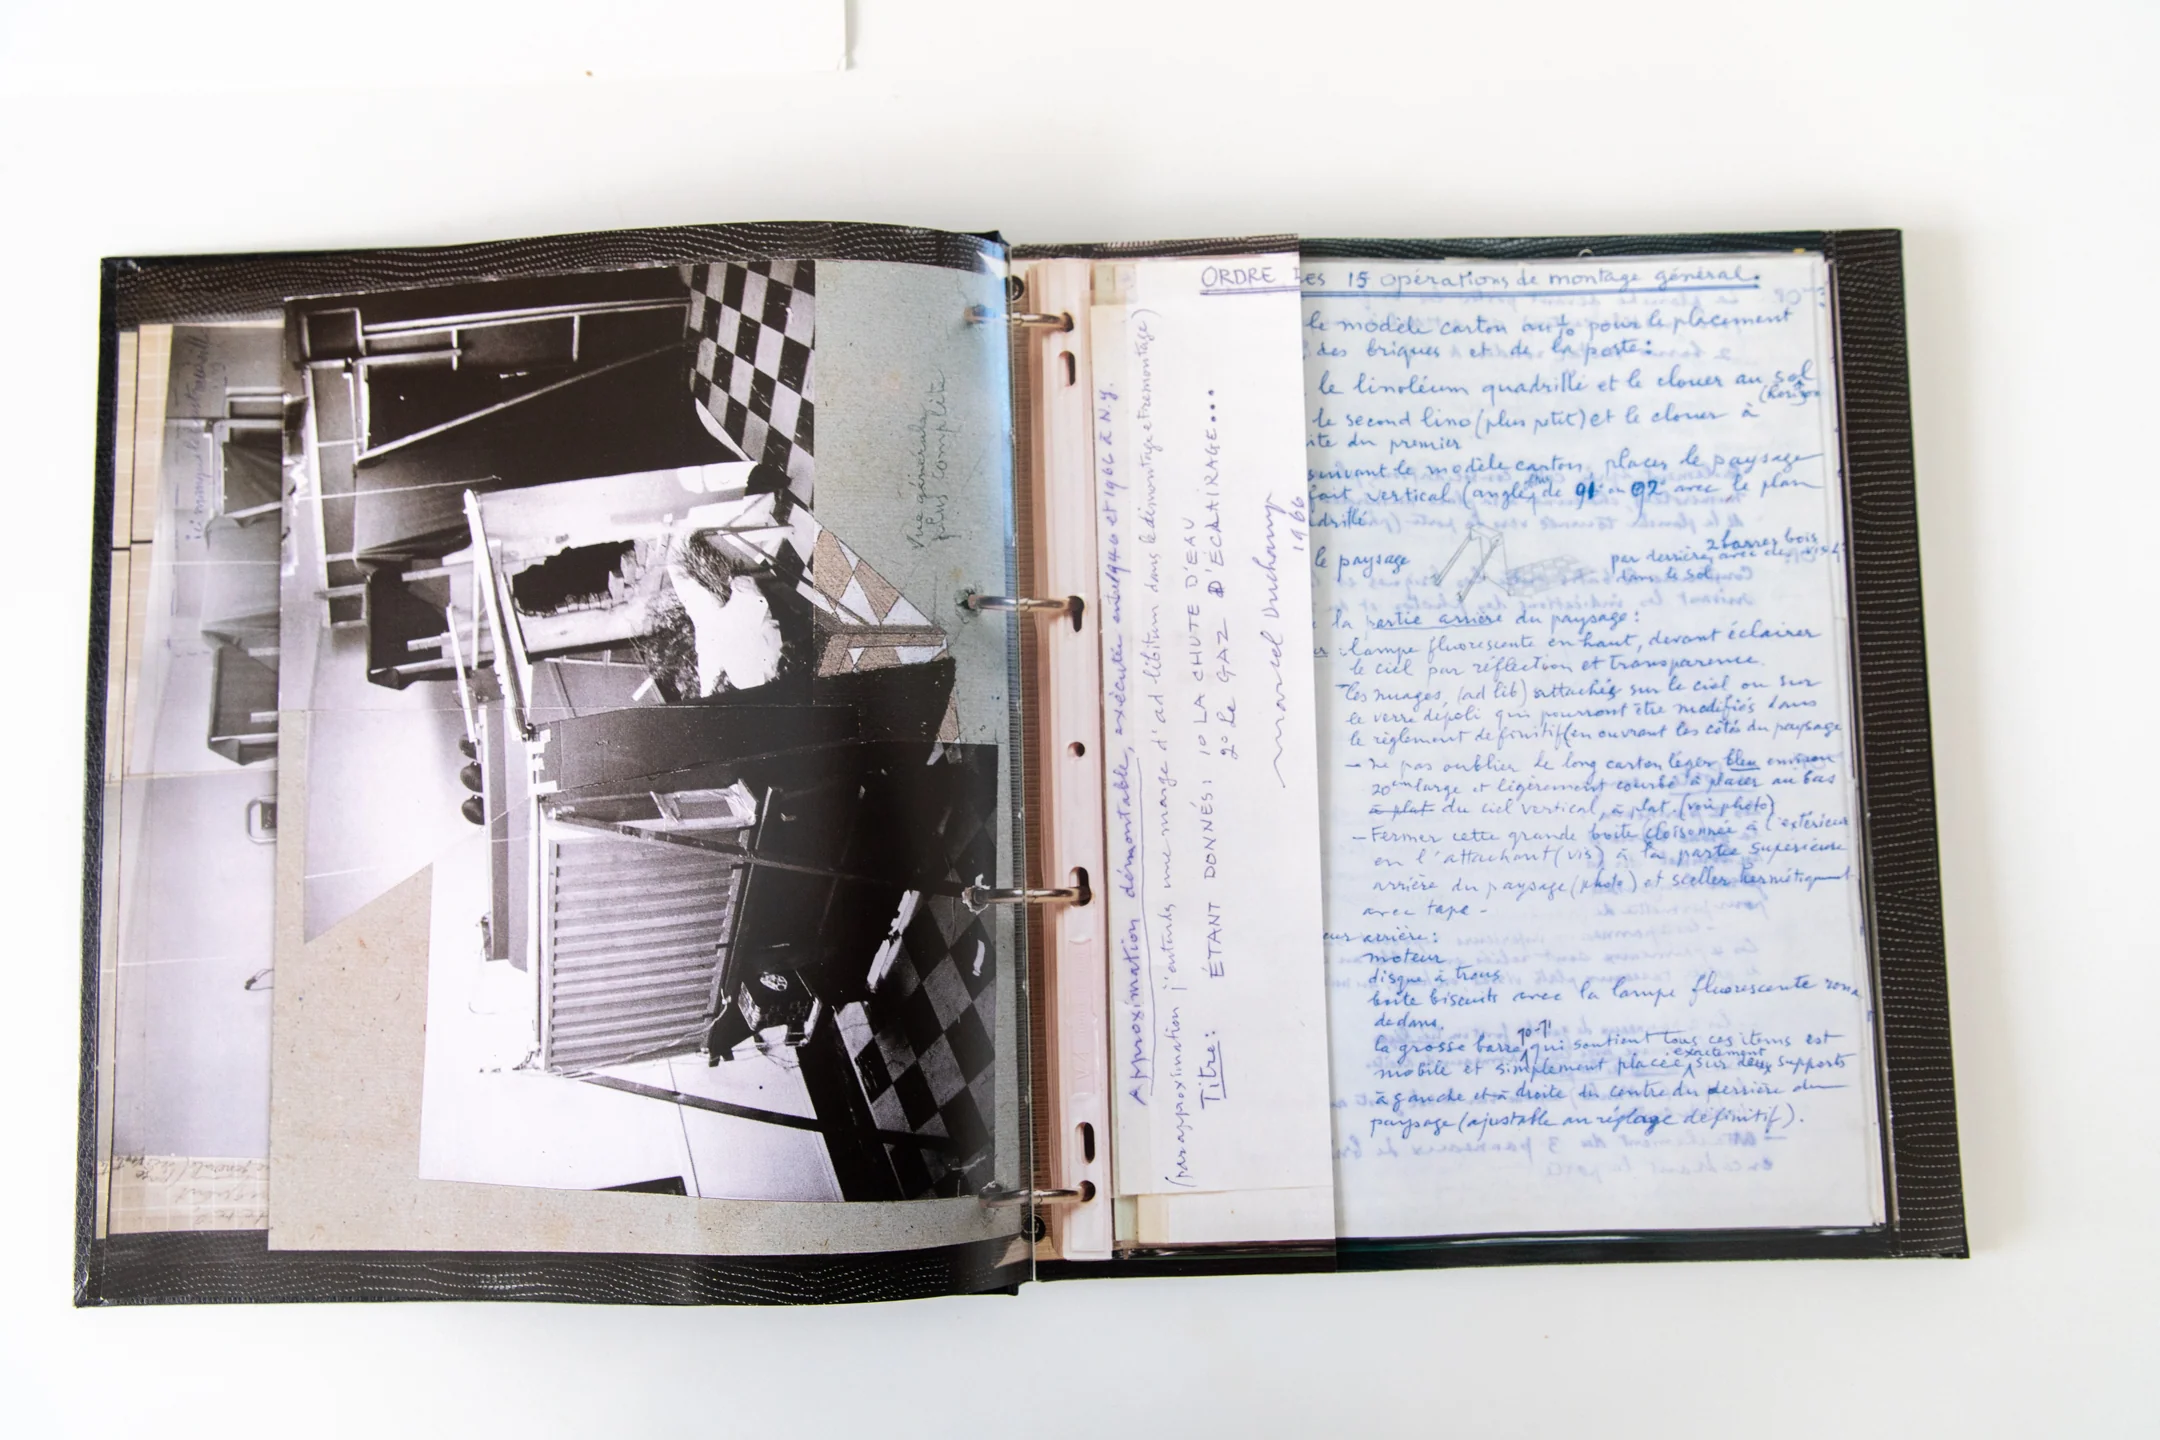 ici manque
Vue générale
plus complète
Approximation démontable, exécutée entre 1946 et 1966 à N.Y.
(par approximation j'entends une marge d'ad libitum dans le démontage et remontage)
Titre: ÉTANT DONNÉS: 1° LA CHUTE D'EAU
2° le GAZ D'ÉCLAIRAGE...
Marcel Duchamp
1966
ORDRE des 15 opérations de montage général.
le modèle carton au 1/10 pour le placement
des briques et de la porte:
le linoléum quadrillé et le clouer au sol
le second lino (plus petit) et le clouer à
ite du premier
suivant le modèle carton, placer le paysage
fait vertical (angle de 91° ou 92° avec le plan
adrillé
le paysage
2 barres bois
par derrière, avec des vis
dans le sol
la partie arrière du paysage:
lampe fluorescente en haut, devant éclairer
le ciel par réflection et transparence.
les nuages, (ad lib) attachés sur le ciel ou sur
le verre dépoli qui pourront être modifiés dans
le règlement définitif (en ouvrant les côtés du paysage
- ne pas oublier le long carton léger bleu environ
20cm large et légèrement courbé à placer au bas
à plat du ciel vertical, à plat. (voir photo)
- Fermer cette grande boite cloisonnée à l'extérieur
en l'attachant (vis) à la partie supérieure
arrière du paysage (photo) et sceller hermétiquement
avec tape -
eur arrière:
moteur
disque à trous
boite biscuits avec la lampe fluorescente ronde
dedans.
la grosse barre qui soutient tous ces items est
mobile et simplement placée exactement sur deux supports
à gauche et à droite du centre du derrière du
paysage (ajustable au réglage définitif).